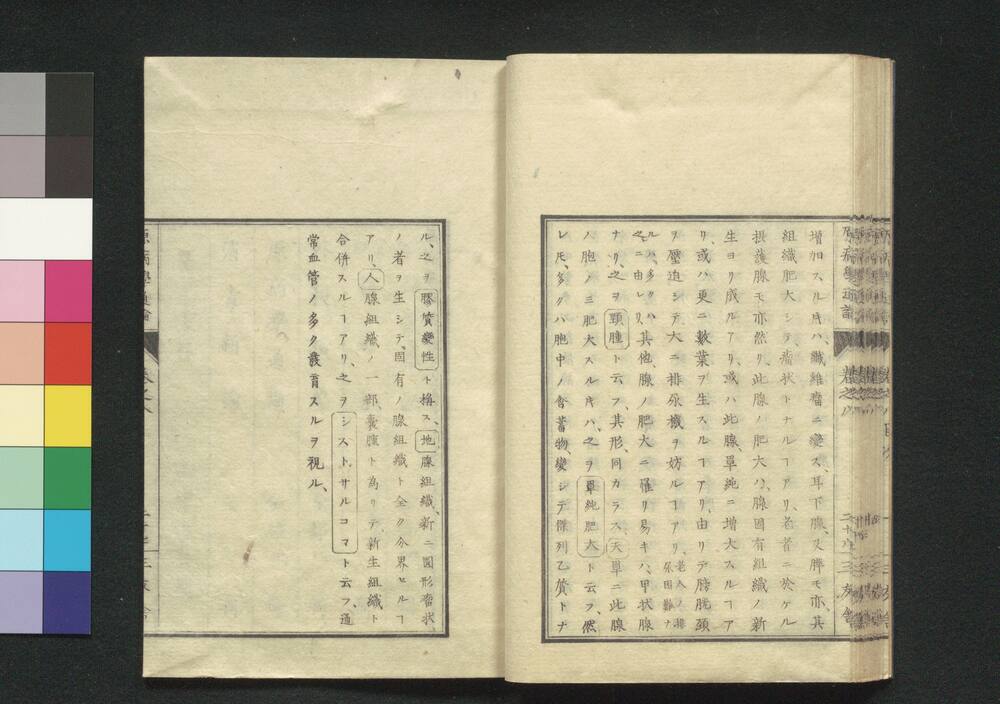 増加スル𪜈ハ、臓維瘤ニ變ス、耳下腺、又脾モ亦、其
組織肥大シテ、瘤状トナルヿアリ、老者ニ於ケル
摂護腺モ亦然リ、此腺ノ肥大ハ、腺固有組織ノ新
生ヨリ成ルアリ、或ハ此腺、單純ニ増大スルヿア
リ、或ハ更ニ數葉ヲ生スルヿアリ、由リテ膀胱頚
ヲ壓迫シテ大ニ排尿機ヲ妨ルヿアリ、老人ノ排尿困難ナ
ルハ、多クハ之ニ由ル其他、腺ノ肥大ニ罹リ易キハ、甲状腺
ナリ、之ヲ頸腫ト云フ、其形、同カラス、天單ニ此腺
ノ胞ノミ肥大スル𪜈ハ、之ヲ單純肥大ト云フ、然
レ𪜈、多クハ胞中ノ含蓄物、變シテ傑列乙質トナ
ル、之ヲ膠質變性ト稱ス、地腺組織、新ニ圓形瘤状
ノ者ヲ生シテ、固有ノ腺組織ト全ク分界セルヿ
アリ、人腺組織ノ一部、嚢腫ト為リテ、新生組織ト
合併スルヿアリ、之ヲシストサルコマト云フ、通
常血管ノ多ク發育スルヲ視ル、